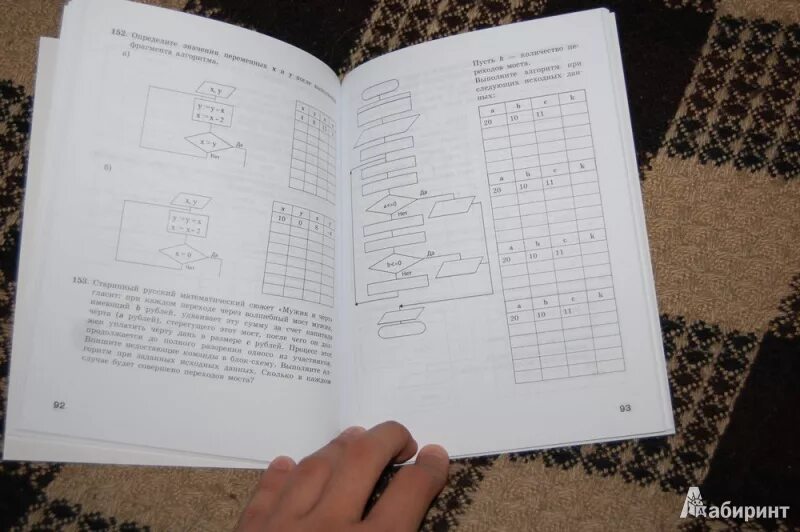 152. Определите значения переменных x и y после выполнения
фрагмента алгоритма.
а)
x, y
y:=y-x
x:=x-2
x>y
Да
Нет
x y x y
4 8
б)
x, y
y:=y+x
x:=x-2
x=0
Да
Нет
x y x y
10 0 8
153. Старинный русский математический сюжет «Мужик и черт»
гласит: при каждом переходе через волшебный мост мужик,
имеющий b рублей, удваивает эту сумму за счет капитала
черта (a рублей), стерегущего этот мост, после чего он должен
уплатить черту дань в размере c рублей. Процесс этот
продолжается до полного разорения одного из участников.
Впишите недостающие команды в блок-схему. Выполните алгоритм
при заданных исходных данных. Сколько в каждом
случае будет совершено переходов моста?
92
a<=0
Да
Нет
b<=0
Да
Нет
Пусть k — количество переходов
моста.
Выполните алгоритм при
следующих исходных данных:
a b c k
20 10 11
a b c k
20 10 11
a b c k
20 10 11
a b c k
20 10 11
93
Лабиринт